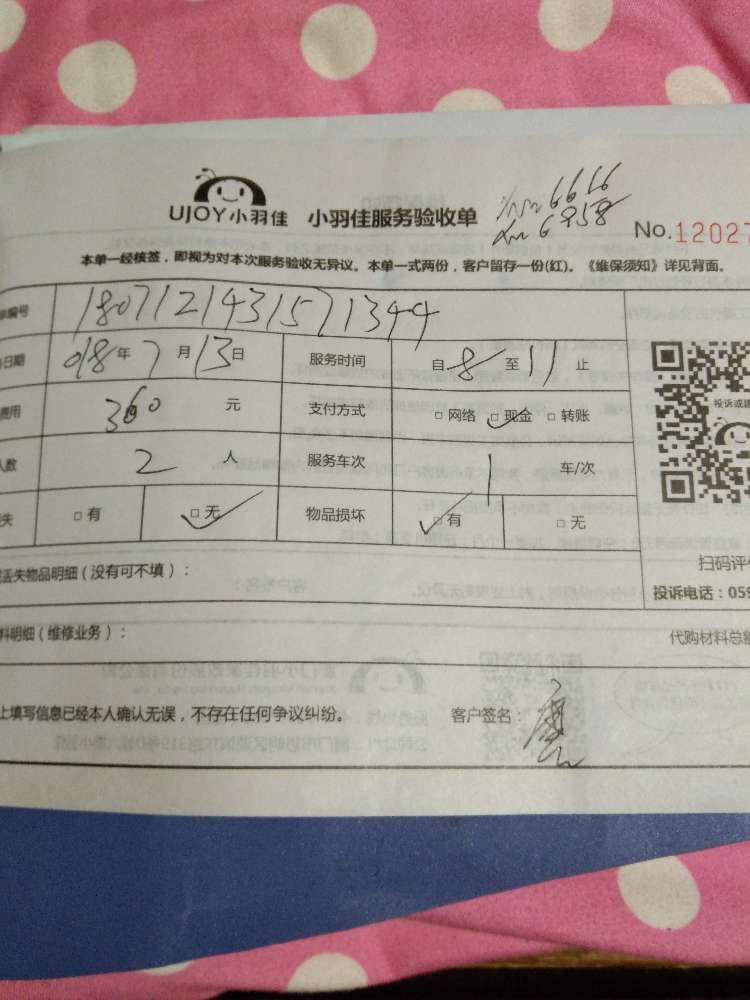 UJOY小羽佳 小羽佳服务验收单
6616
6958
No.12027
本单一经核签，即视为对本次服务验收无异议。本单一式两份，客户留存一份(红)。《维保须知》详见背面。
单编号 1807121431571344
日期 018年 7月 13日 服务时间 自 8 至 11 止
费用 360 元 支付方式 □ 网络 □ 现金 □ 转账
人数 2 人 服务车次 1 车/次
失 □ 有 □ 无 物品损坏 □ 有 □ 无
投诉或建
扫码评价
丢失物品明细（没有可不填）：
投诉电话：059
料明细（维修业务）：
代购材料总额
上填写信息已经本人确认无误，不存在任何争议纠纷。 客户签名：